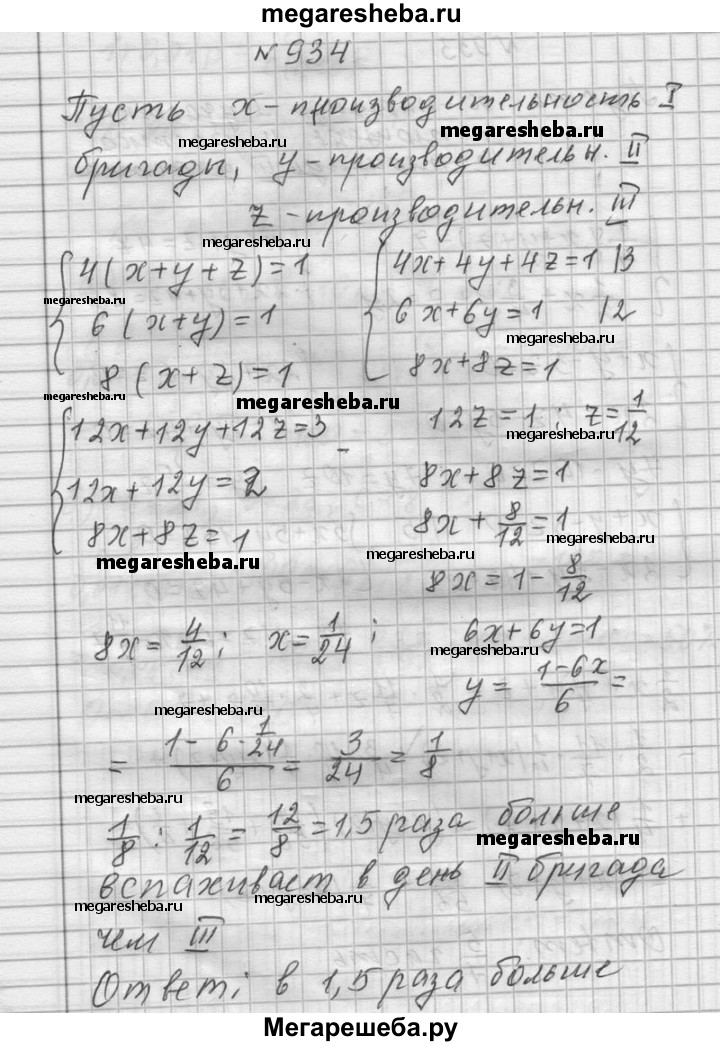 megaresheba.ru
№ 934
Пусть x - производительность I
megaresheba.ru megaresheba.ru
бригады, y - производительн. II
z - производительн. III
megaresheba.ru megaresheba.ru
{ 4(x+y+z)=1 { 4x+4y+4z=1 |3
megaresheba.ru
6(x+y)=1 6x+6y=1 |2
megaresheba.ru
8(x+z)=1 8x+8z=1
megaresheba.ru megaresheba.ru
{ 12x+12y+12z=3 - 12z=1; z=1/12
megaresheba.ru
12x+12y=2 8x+8z=1
8x+8z=1 8x+8/12=1
megaresheba.ru megaresheba.ru
8x=1-8/12
8x=4/12; x=1/24; 6x+6y=1
megaresheba.ru
y=(1-6x)/6=
megaresheba.ru
=(1-6·1/24)/6=3/24=1/8
megaresheba.ru
1/8:1/12=12/8=1,5 раза больше
megaresheba.ru
вспахивает в день II бригада
megaresheba.ru megaresheba.ru
чем III
Ответ: в 1,5 раза больше
Мегарешеба.ру